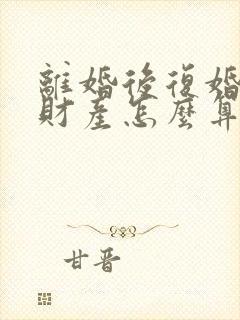 離婚後復婚
財產怎麼算
甘晋